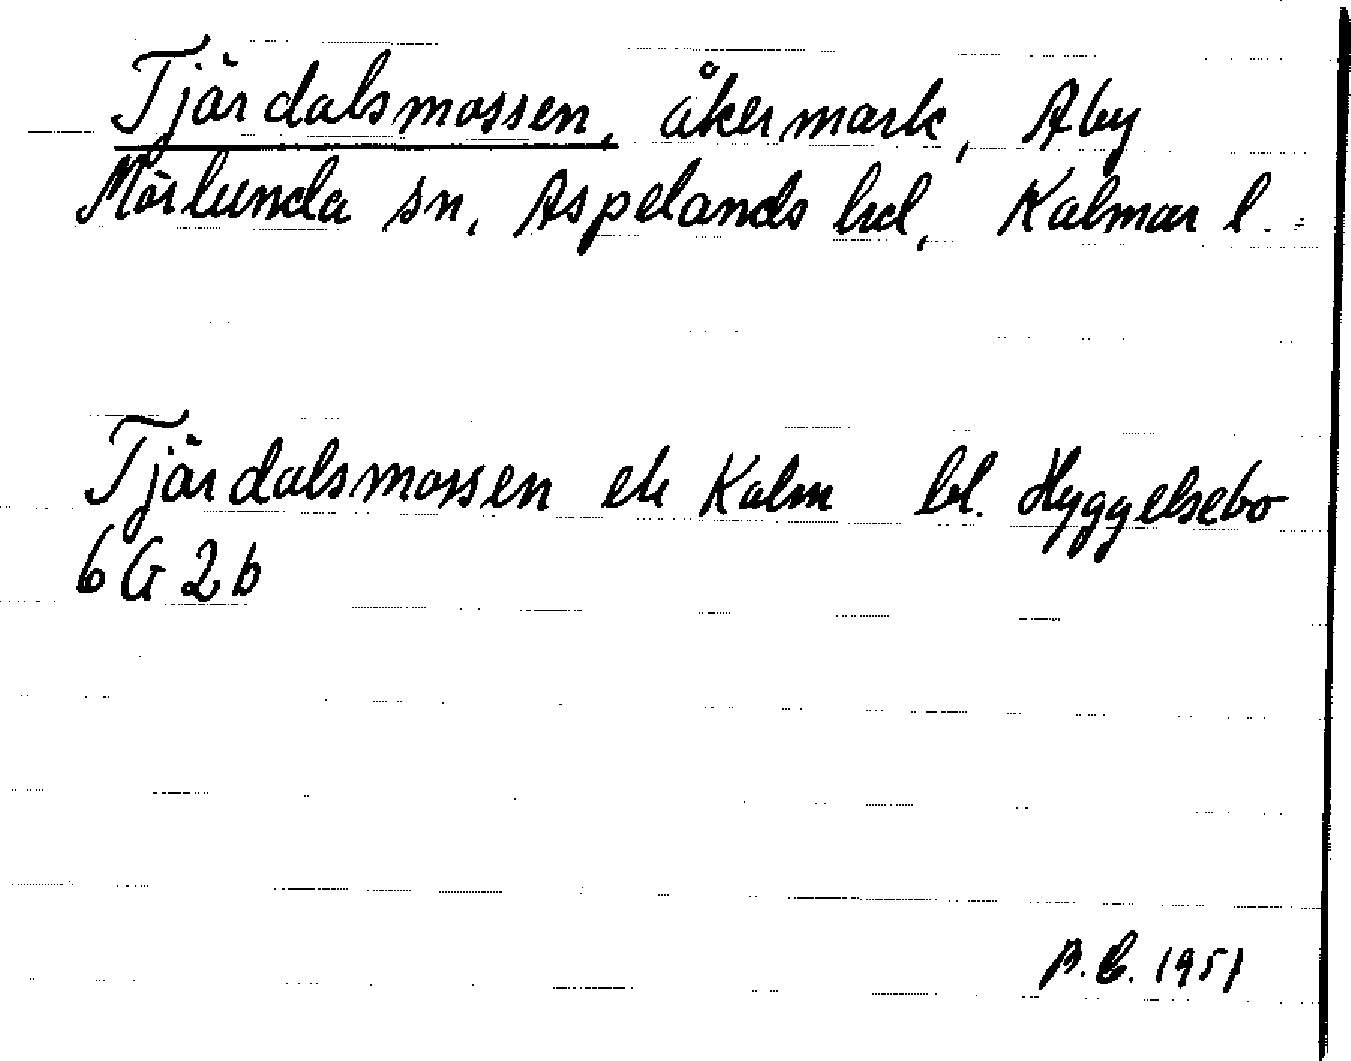 Tjärdalsmossen, åkermark, Aby
Mörlunda sn, Aspelands hd, Kalmar l.
Tjärdalsmossen ek Kalm bl. Hyggelsebo
6G2b
B.E. 1951